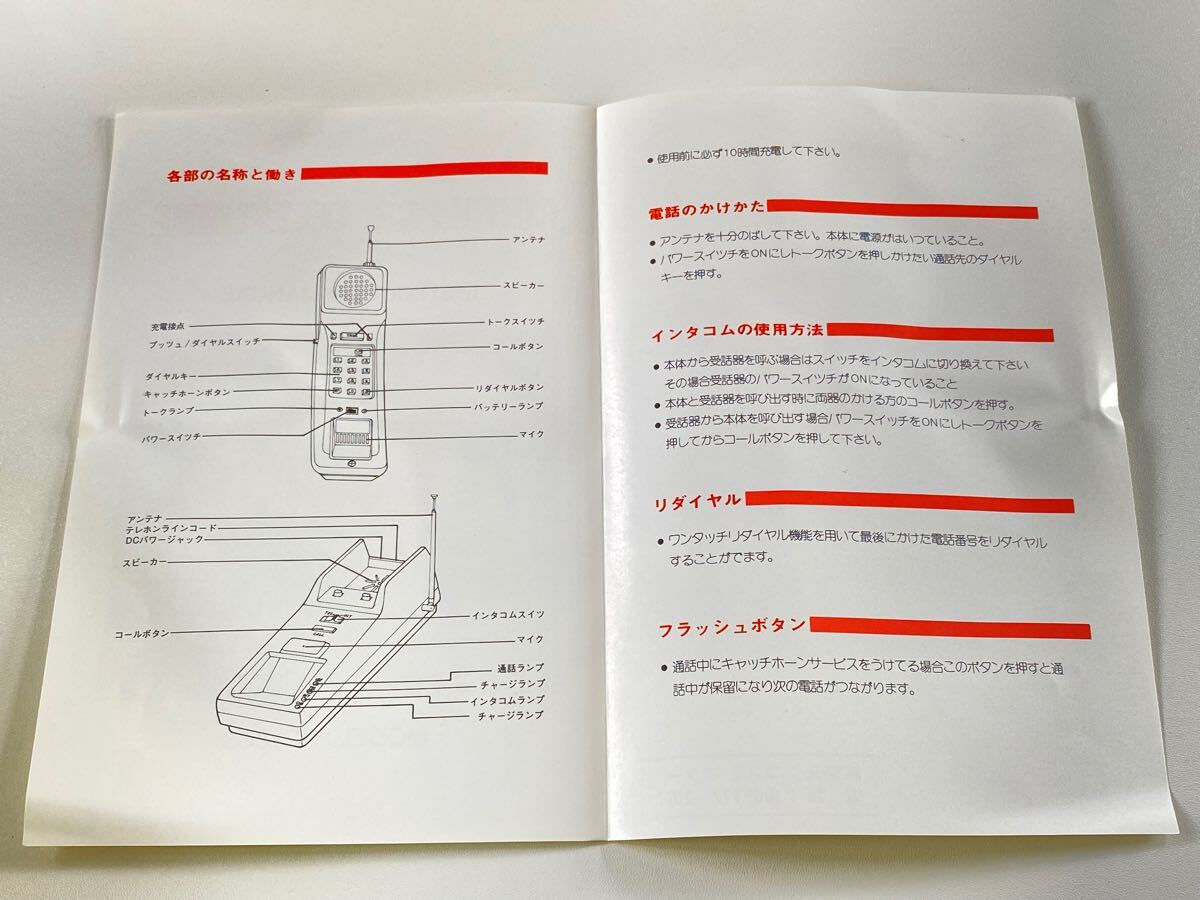 各部の名称と働き
アンテナ
スピーカー
充電接点
トークスイツチ
プッツュ/ダイヤルスイッチ
コールボタン
ダイヤルキー
キャッチホーンボタン
リダイヤルボタン
トークランプ
バッテリーランプ
パワースイツチ
マイク
アンテナ
テレホンラインコード
DCパワージャック
スピーカー
インタコムスイツ
コールボタン
CALL
マイク
通話ランプ
チャージランプ
インタコムランプ
チャージランプ
● 使用前に必ず10時間充電して下さい。
電話のかけかた
● アンテナを十分のばして下さい。本体に電源がはいつていること。
● パワースイツチをONにしトークボタンを押しかけたい通話先のダイヤル
キーを押す。
インタコムの使用方法
● 本体から受話器を呼ぶ場合はスイッチをインタコムに切り換えて下さい
その場合受話器のパワースイツチがONになっていること
● 本体と受話器を呼び出す時に両器のかける方のコールボタンを押す。
● 受話器から本体を呼び出す場合パワースイッチをONにしトークボタンを
押してからコールボタンを押して下さい。
リダイヤル
● ワンタッチリダイヤル機能を用いて最後にかけた電話番号をリダイヤル
することがでます。
フラッシュボタン
● 通話中にキャッチホーンサービスをうけてる場合このボタンを押すと通
話中が保留になり次の電話がつながります。